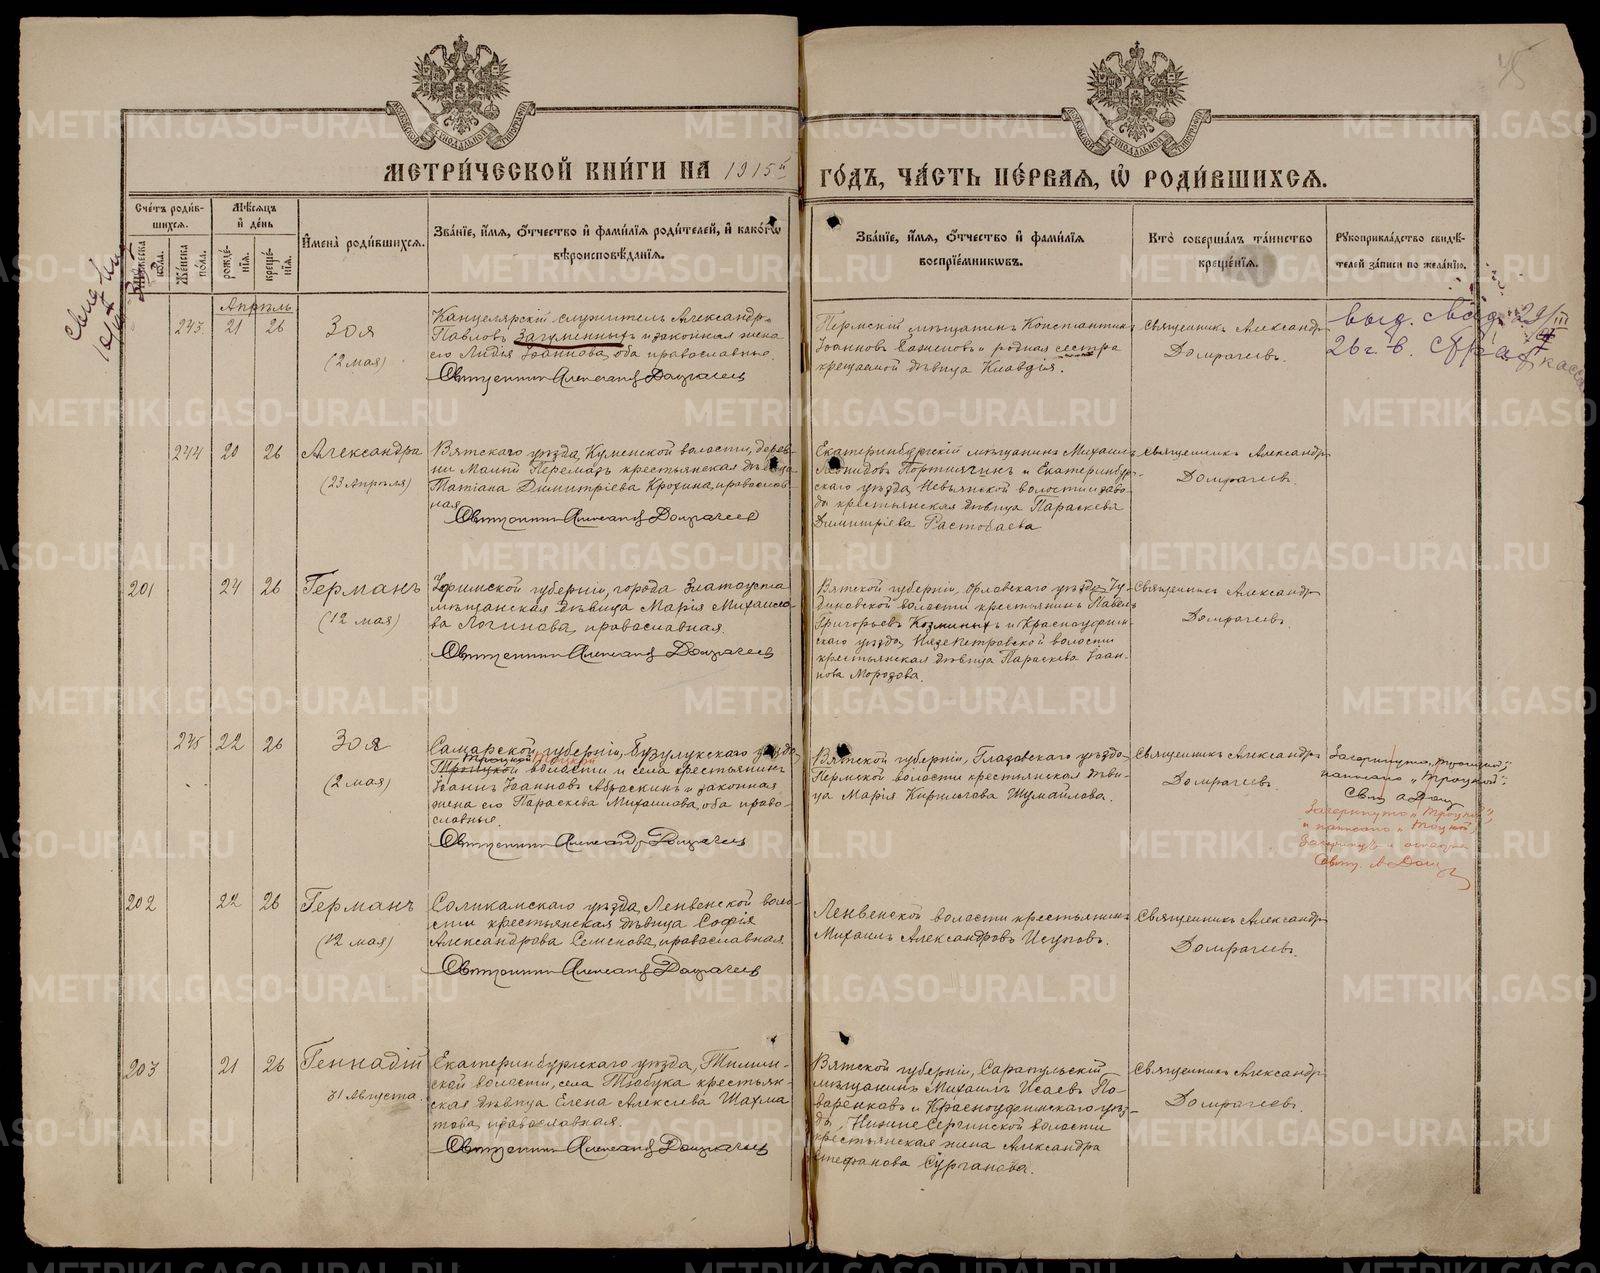 МЕТРИ́ЧЕСКОЙ КНИ́ГИ НА 1915й ГО́ДЪ, ЧА́СТЬ ПЕ́РВАЯ, Ѡ҆ РОДИ́ВШИХСЯ.
Сче́тъ роди́в-
шихся.
Мѣ́сяцъ
и҆ де́нь
Мꙋжеска по́ла.
Же́нска по́ла.
рожде́-
нїя.
креще́-
нїя.
И҆мена̀ роди́вшихся.
Зва́нїе, и҆́мя, ѻ҆́тчество и҆ фами́лїя роди́телей, и҆ како́гѡ
вѣроисповѣ́данїя.
Зва́нїе, и҆́мя, ѻ҆́тчество и҆ фами́лїя
воспрїе́мниковъ.
Кто̀ соверша́лъ та́инство
креще́нїя.
Рꙋкоприкла́дство свидѣ́-
телей за́писи по жела́нїю.
Апрѣль
243. 21 26 Зоя
(2 мая)
Канцелярскій служитель Александръ
Павловъ Загуменныхъ и законная жена
его Лидія Іоаннова, оба православные.
Священникъ Александръ Домрачевъ
Пермскій мѣщанинъ Константинъ
Іоанновъ и родная сестра
крещаемой дѣвица Клавдія.
Священникъ Александръ
Домрачевъ.
выд. свид. 29/III
26 г. в.
244 20 26 Александра
(23 Апрѣля)
Вятскаго уѣзда, Куменской волости, дерев-
ни Малый Перемазъ крестьянская дѣвица
Татіана Димитріева Крохина, православ-
ная
Священникъ Александръ Домрачевъ
Екатеринбургскій мѣщанинъ Михаилъ
Леонидовъ Портнягинъ и Екатеринбур-
скаго уѣзда, Невьянской волости и заво-
да крестьянская дѣвица Параскева
Димитріева Растобаева
Священникъ Александръ
Домрачевъ.
201 24 26 Германъ
(12 мая)
Уфимской губерніи, города Златоуста
мѣщанская дѣвица Марія Михаило-
ва Логинова, православная.
Священникъ Александръ Домрачевъ
Вятской губерніи, Орловскаго уѣзда, Чу-
диновской волости крестьянинъ Павелъ
Григорьевъ Козминыхъ и Красноуфим-
скаго уѣзда, Нязепетровской волости
крестьянская дѣвица Параскева Іоан-
нова Морозова.
Священникъ Александръ
Домрачевъ.
245 22 26 Зоя
(2 мая)
Самарской губерніи, Бузулукскаго уѣзда,
Троцкой Тоцкой
Троицкой волости и села крестьянинъ
Іоаннъ Іоанновъ Абраскинъ и законная
жена его Параскева Михаилова, оба право-
славные.
Священникъ Александръ Домрачевъ
Вятской губерніи, Глазовскаго уѣзда,
Пермской волости крестьянская дѣви-
ца Марія Кирилова Шумайлова.
Священникъ Александръ
Домрачевъ.
Зачеркнуто „Троицкой“,
написано „Троцкой“;
Свящ А Дом
Зачеркнуто „Троцкой“,
и написано „Тоцкой“,
Свящ. А Дом
202 22 26 Германъ
(12 мая)
Соликамскаго уѣзда, Ленвенской воло-
сти крестьянская дѣвица Софія
Александрова Семенова, православная.
Священникъ Александръ Домрачевъ
Ленвенской волости крестьянинъ
Михаилъ Александровъ Исуповъ.
Священникъ Александръ
Домрачевъ.
203 21 26 Геннадій
31 Августа.
Екатеринбургскаго уѣзда, Тимин-
ской волости, села Тюбука крестьян-
ская дѣвица Елена Алексѣева Шахма
това, православная.
Священникъ Александръ Домрачевъ
Вятской губерніи, Сарапульскій
мѣщанинъ Михаилъ Исаевъ По-
варенковъ и Красноуфимскаго уѣз-
да, Нижне Сергинской волости
крестьянская жена Александра
Стефанова Сурганова.
Священникъ Александръ
Домрачевъ.
METRIKI.GASO-URAL.RU